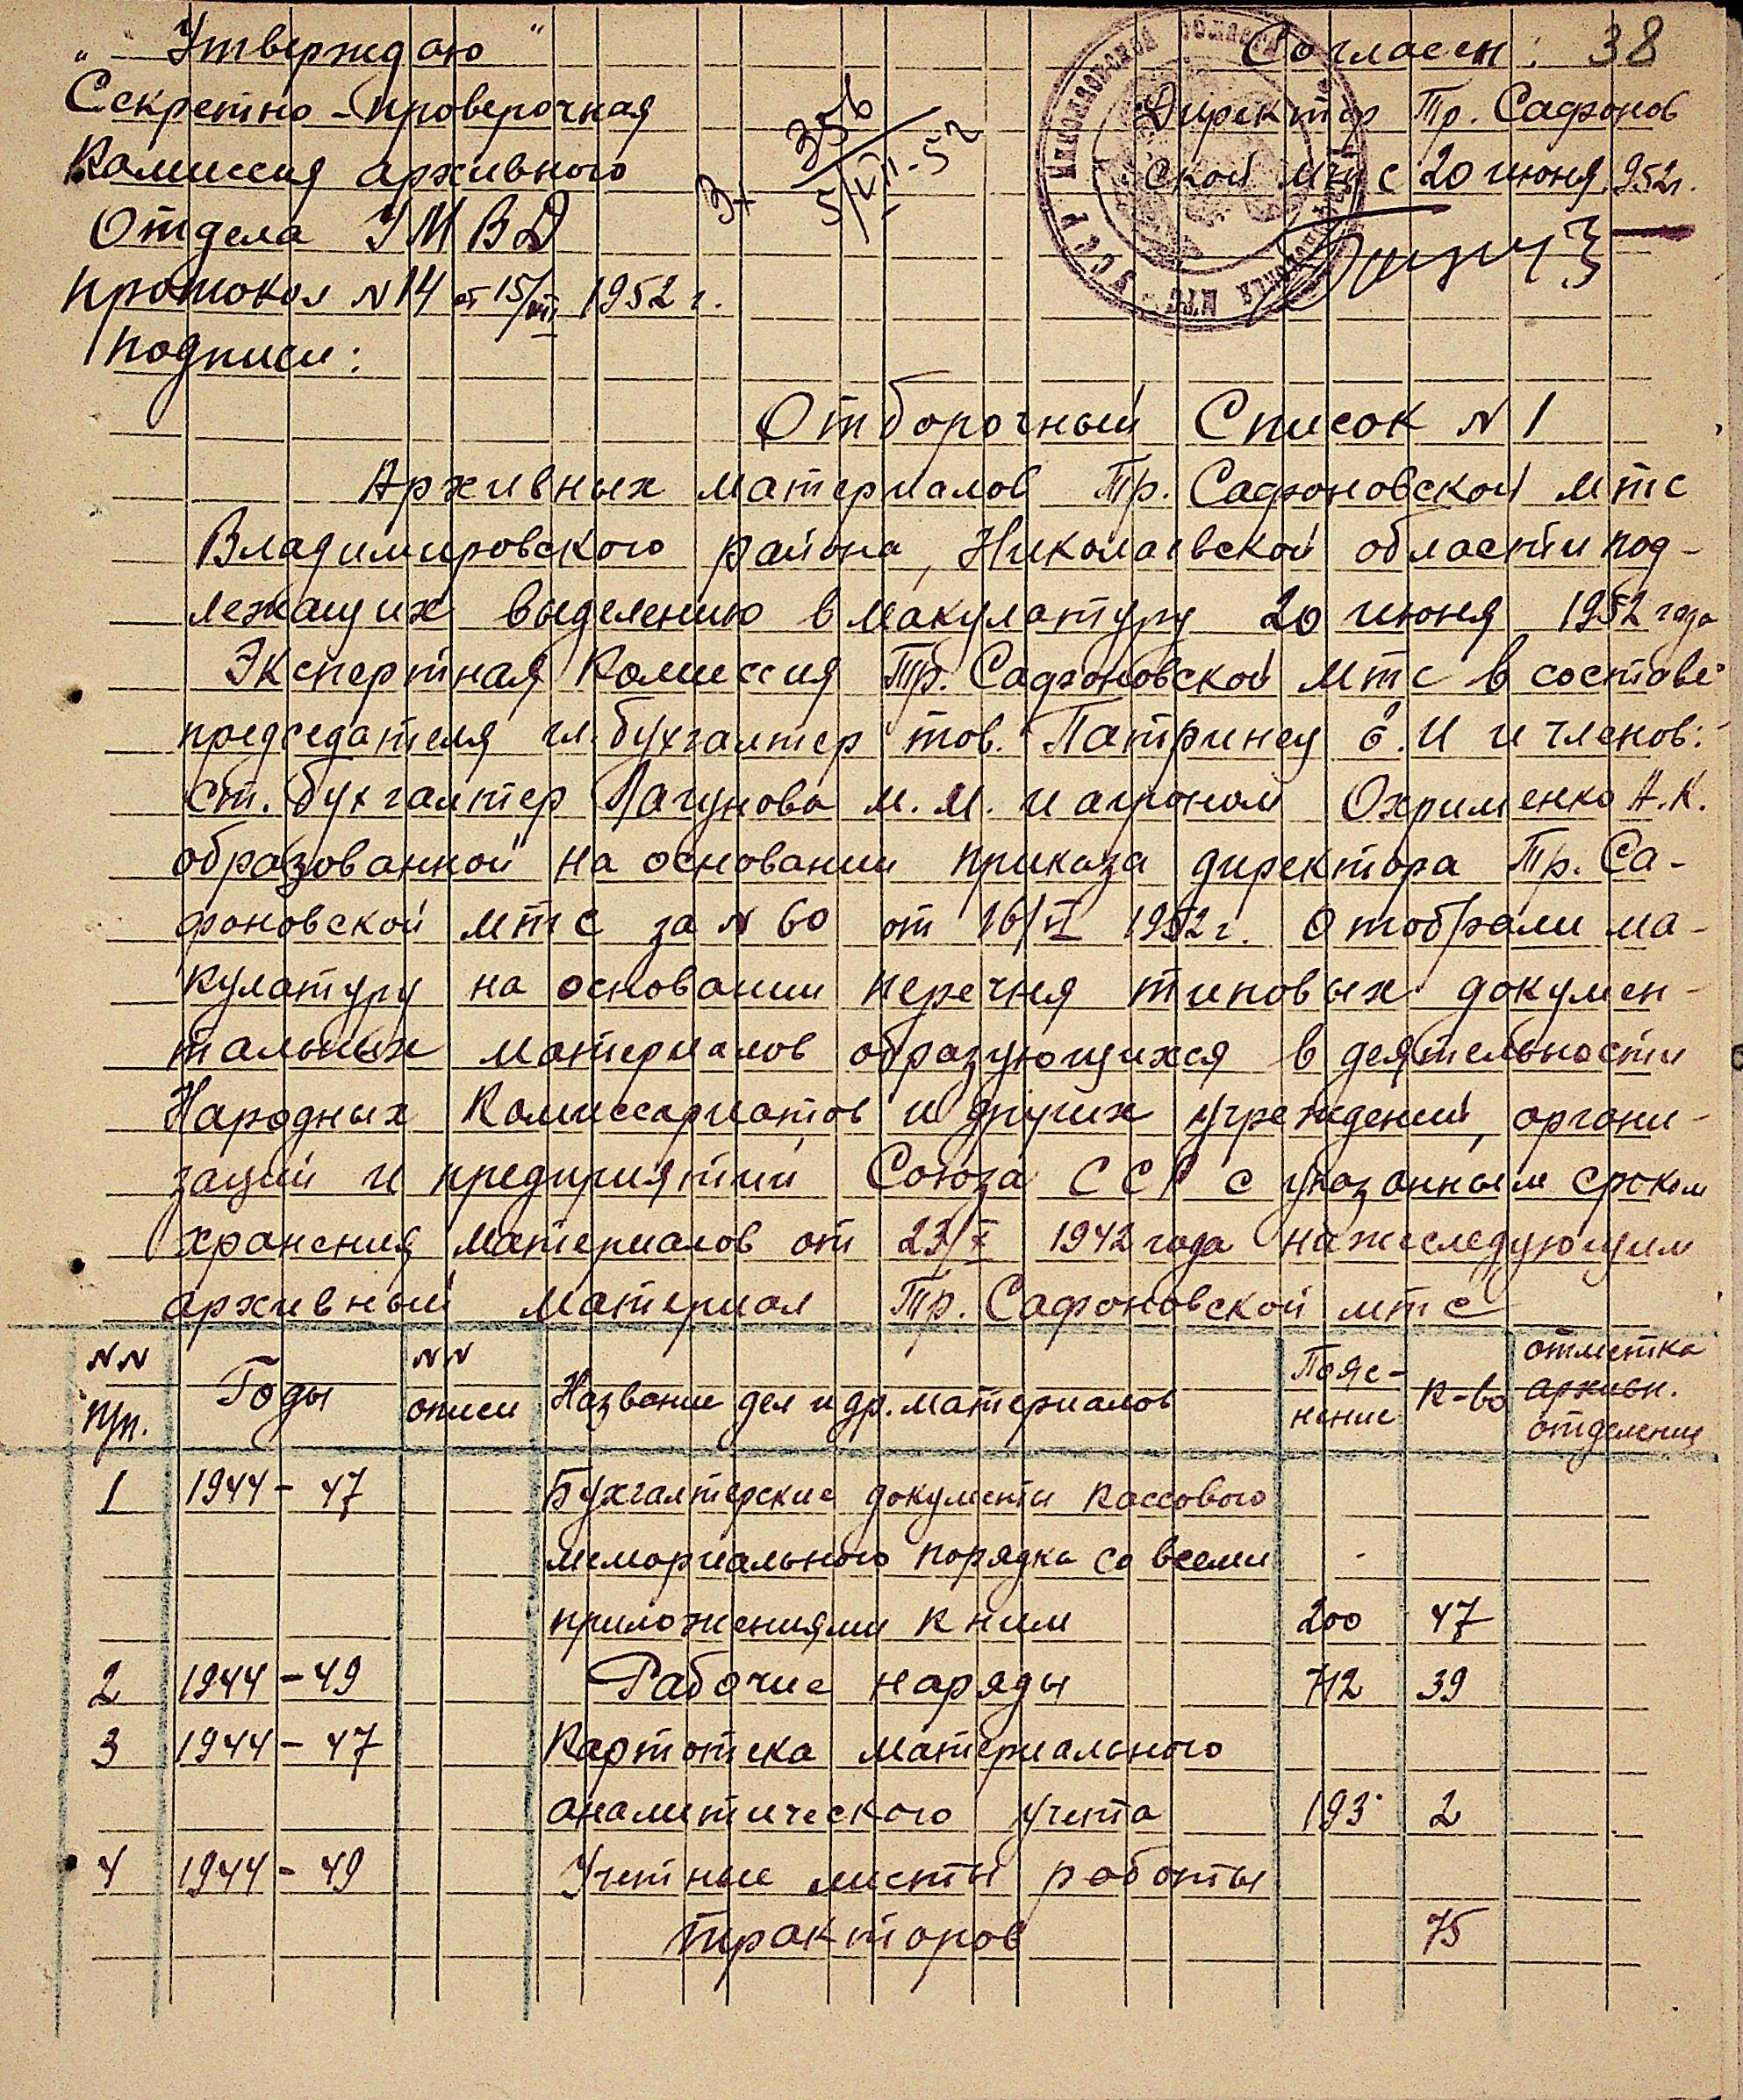 "Утверждаю"
Секретно-проверочная
Комиссия архивного
Отдела УМВД
протокол N14 от 15/VII 1952 г.
подписи:
356
5/VII-52
Согласен: 38
Директор Тр. Сафонов
ской мтс 20 июня 952г.
Отборочный Список N 1
Архивных материалов Тр. Сафоновской мтс
Владимировского района, Николаевской области под-
лежащих выделению в макулатуру 20 июня 1952 года
Экспертная Комиссия Тр. Сафоновской мтс в составе
председателя гл. бухгалтер тов. И и членов:
ст. бухгалтер Лагунова м. м. и агроном Охрименко А.К.
образованной на основании приказа директора Тр. Са-
фоновской мтс за N 60 от 16/VI 1952г. отобрали ма-
кулатуру на основании перечня типовых докумен-
тальных материалов образующихся в деятельности
Народных Комиссариатов и других учреждений, органи-
заций и предприятий Союза ССР с указанным сроком
хранения материалов от 23/X 1942 года нижеследующим
архивный материал Тр. Сафоновской мтс
NN п/п. Годы NN описи Название дел и др. материалов Пояс-нение К-во отметка архивн. отделения
1 1944-47 Бухгалтерские документы кассового
мемориального порядка со всеми
приложениями к ним 200 47
2 1944-49 Рабочие наряды 712 39
3 1944-47 Картотека материального
аналитического учета 193 2
4 1944-49 Учетные листы работы
тракторов 75